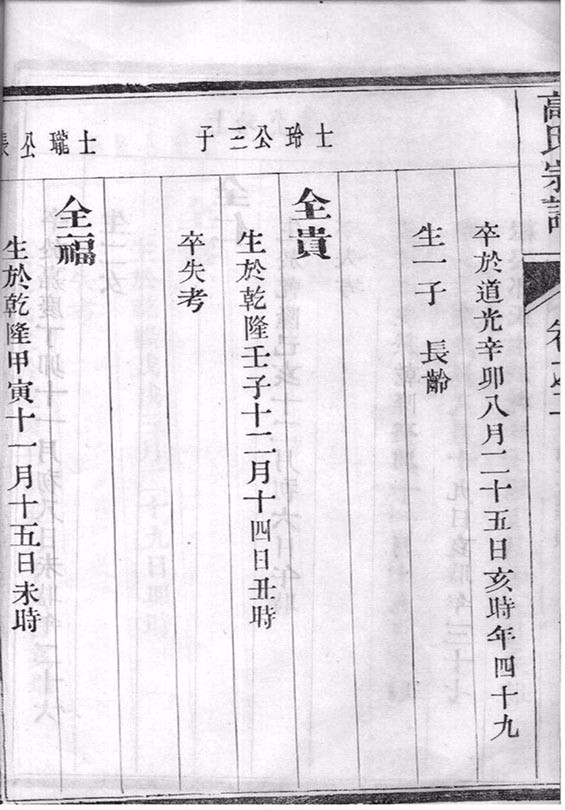 高氏宗譜
卷一之二
卒於道光辛卯八月二十五日亥時年四十九
生一子 長齡
士玲公三子
全貴
生於乾隆壬子十二月十四日丑時
卒失考
士瓏公長
全福
生於乾隆甲寅十一月十五日未時